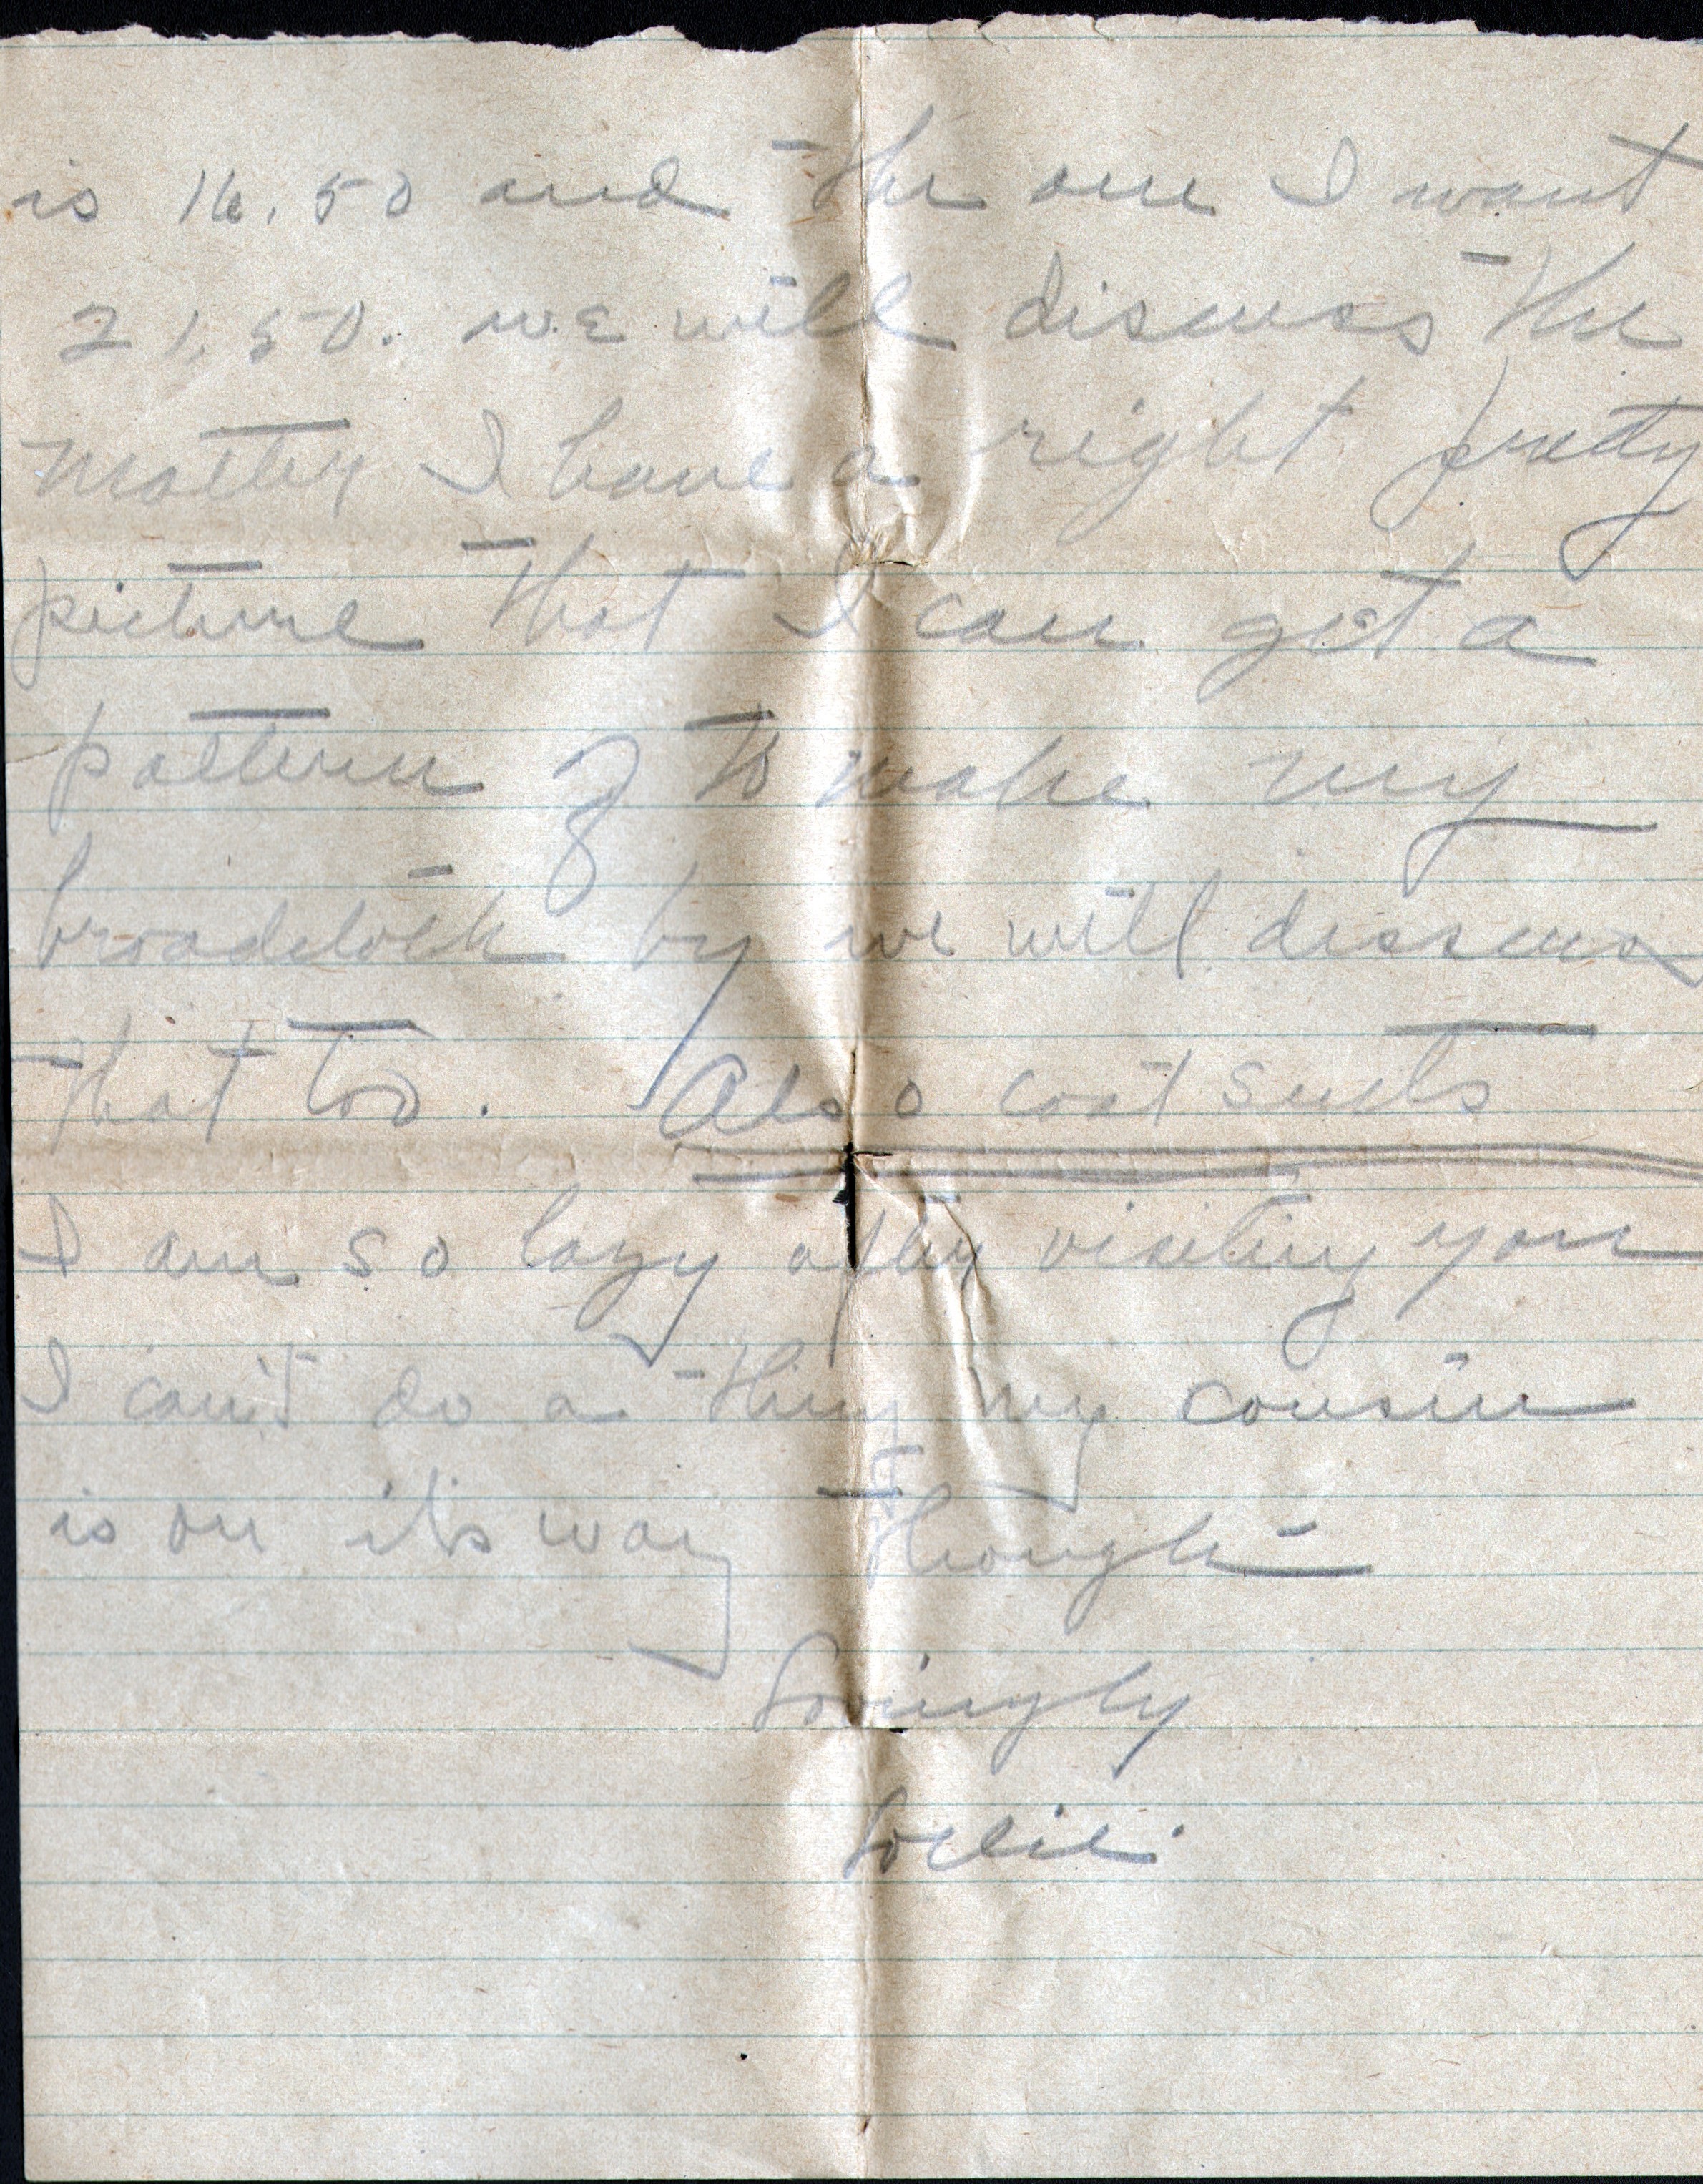 is 16.50 and the one I want
21.50. we will discuss the
matter I have a right pretty
picture that I can get a
pattern of to make my
broadcloth by we will discuss
that too. Also coat suits
I am so lazy after visiting you
I can't do a thing my cousin
is on its way though
Lovingly